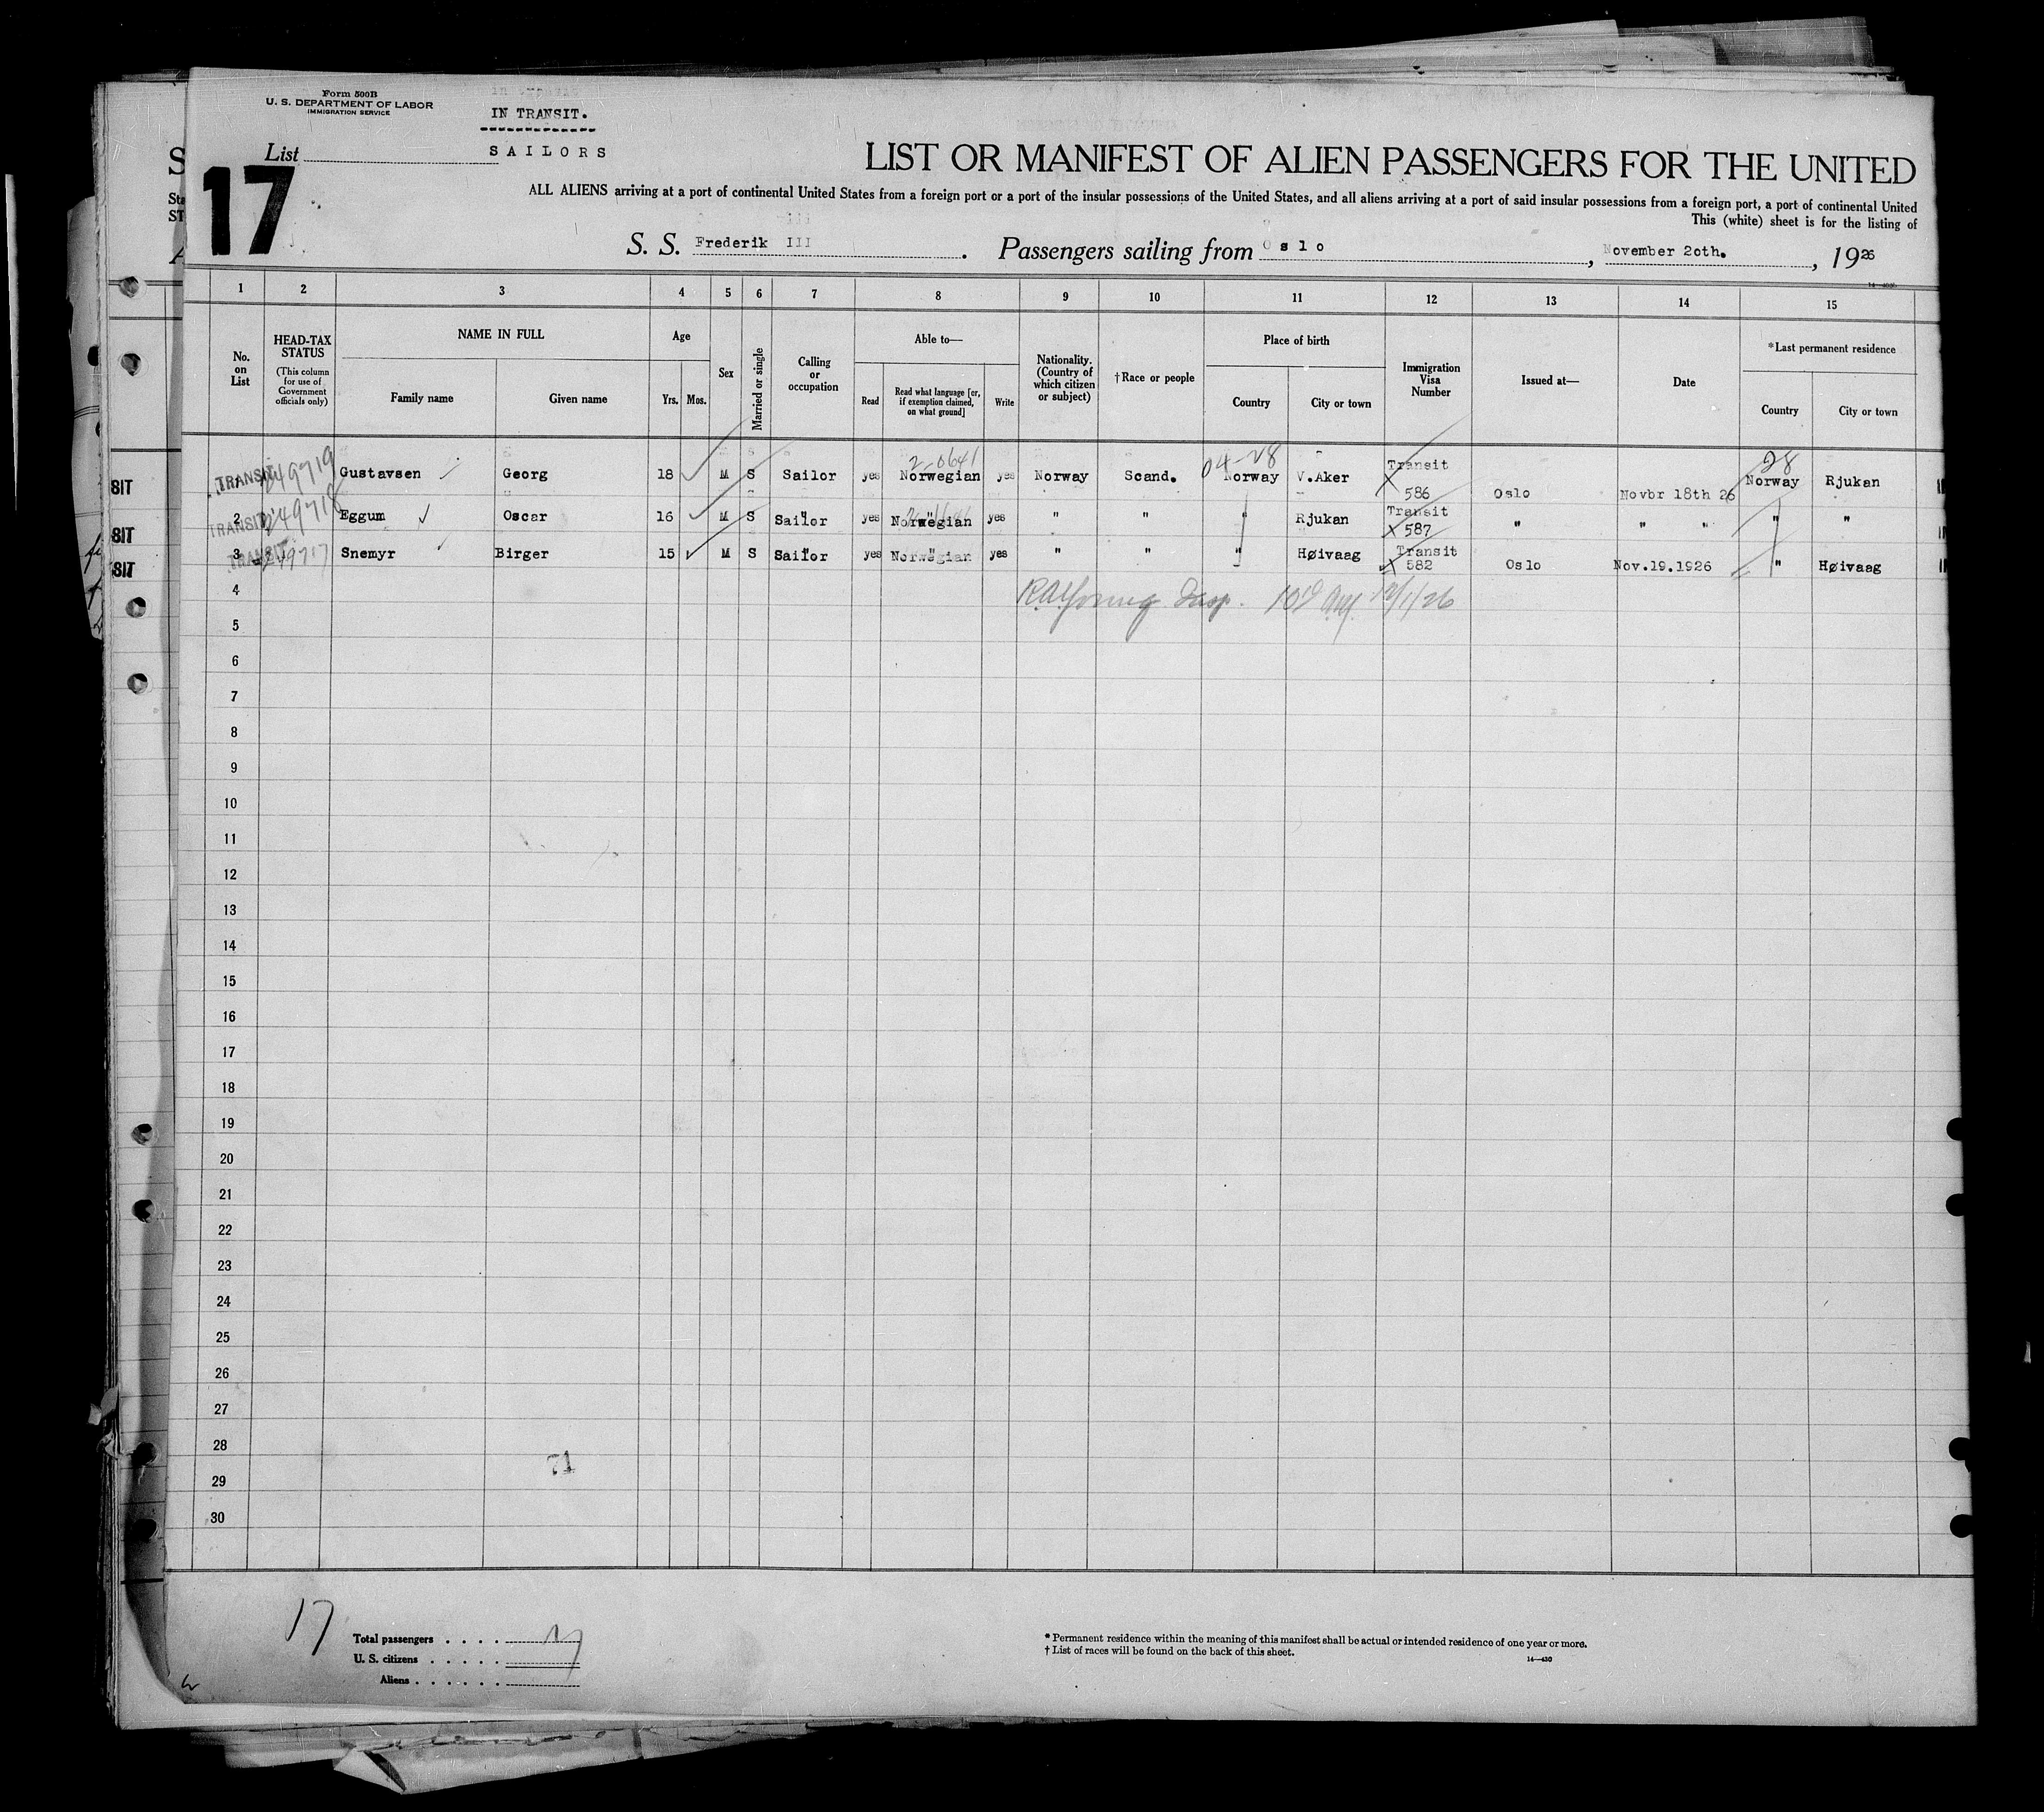 Form 500B
U. S. DEPARTMENT OF LABOR
IMMIGRATION SERVICE
IN TRANSIT.
List SAILORS
17
LIST OR MANIFEST OF ALIEN PASSENGERS FOR THE UNITED
ALL ALIENS arriving at a port of continental United States from a foreign port or a port of the insular possessions of the United States, and all aliens arriving at a port of said insular possessions from a foreign port, a port of continental United
This (white) sheet is for the listing of
S. S. Frederik III. Passengers sailing from Oslo, November 2oth., 1926
14—430
1 2 3 4 5 6 7 8 9 10 11 12 13 14 15
No. on List
HEAD-TAX STATUS (This column for use of Government officials only)
NAME IN FULL
Family name Given name
Age
Yrs. Mos.
Sex
Married or single
Calling or occupation
Able to—
Read Read what language [or, if exemption claimed, on what ground] Write
Nationality. (Country of which citizen or subject)
†Race or people
Place of birth
Country City or town
Immigration Visa Number
Issued at—
Date
*Last permanent residence
Country City or town
2-0641 04-28 28
TRANSIT 249719 Gustavsen Georg 18 M S Sailor yes Norwegian yes Norway Scand. Norway V.Aker Transit 586 Oslo Novbr 18th 26 Norway Rjukan
2 TRANSIT 249718 Eggum Oscar 16 M S Sailor yes Norwegian yes " " " Rjukan Transit 587 " " " " "
3 TRANSIT 249717 Snemyr Birger 15 M S Sailor yes Norwegian yes " " " Høivaag Transit 582 Oslo Nov.19.1926 " Høivaag
4 12/1/26
5
6
7
8
9
10
11
12
13
14
15
16
17
18
19
20
21
22
23
24
25
26
27
28
71
29
30
17
Total passengers
U. S. citizens
Aliens
* Permanent residence within the meaning of this manifest shall be actual or intended residence of one year or more.
† List of races will be found on the back of this sheet.
14—430